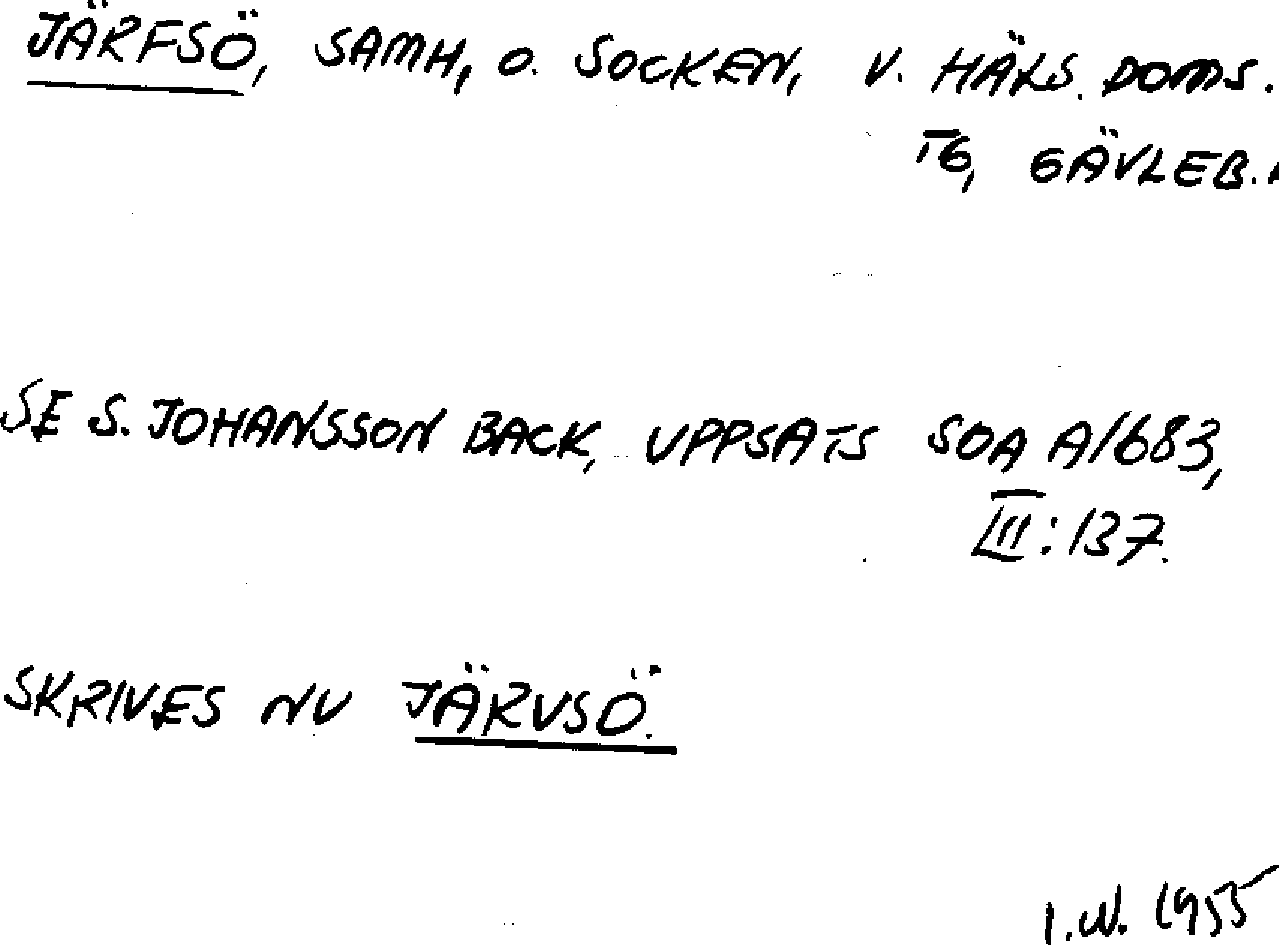 JÄRFSÖ, SAMH, O. SOCKEN, V. HÄLS. DOMS.
TG, GÄVLEB.
SE S. JOHANSSON BACK, UPPSATS SOA A/683,
III:137.
SKRIVES NU JÄRVSÖ.
I.W. 1955